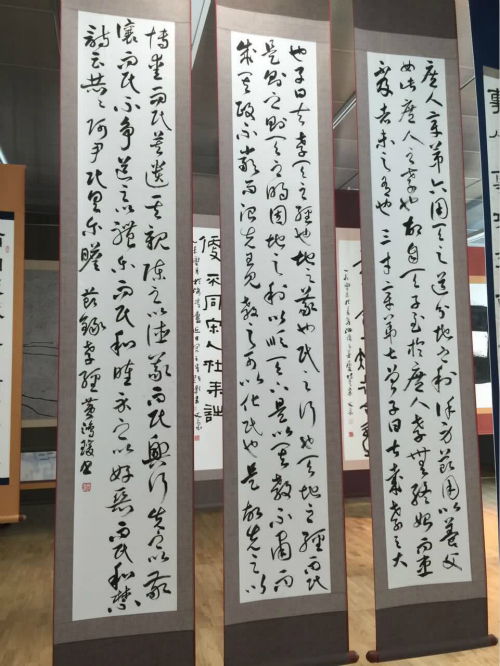 庶人章第六用天之道分地之利謹身節用以養父
母此庶人之孝也故自天子至於庶人孝無終始而患
不及者未之有也三才章第七曾子曰甚哉孝之大
也子曰夫孝天之經也地之義也民之行也天地之經而民
是則之則天之明因地之利以順天下是以其教不肅而
成其政不嚴而治先王見教之可以化民也是故先之以
博愛而民莫遺其親陳之以德義而民興行先之以敬
讓而民不爭導之以禮樂而民和睦示之以好惡而民知禁
詩云赫赫師尹民具爾瞻 節錄孝經 黃鴻